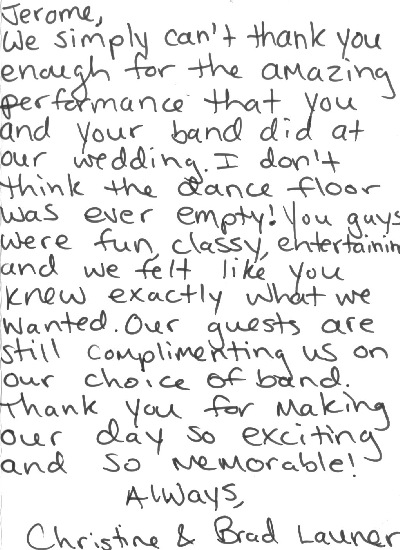 Jerome,
We simply can't thank you
enough for the amazing
performance that you
and your band did at
our wedding. I don't
think the dance floor
was ever empty! You guys
were fun, classy, entertainin
and we felt like you
knew exactly what we
wanted. Our guests are
still complimenting us on
our choice of band.
Thank you for making
our day so exciting
and so memorable!
Always,
Christine & Brad Launer